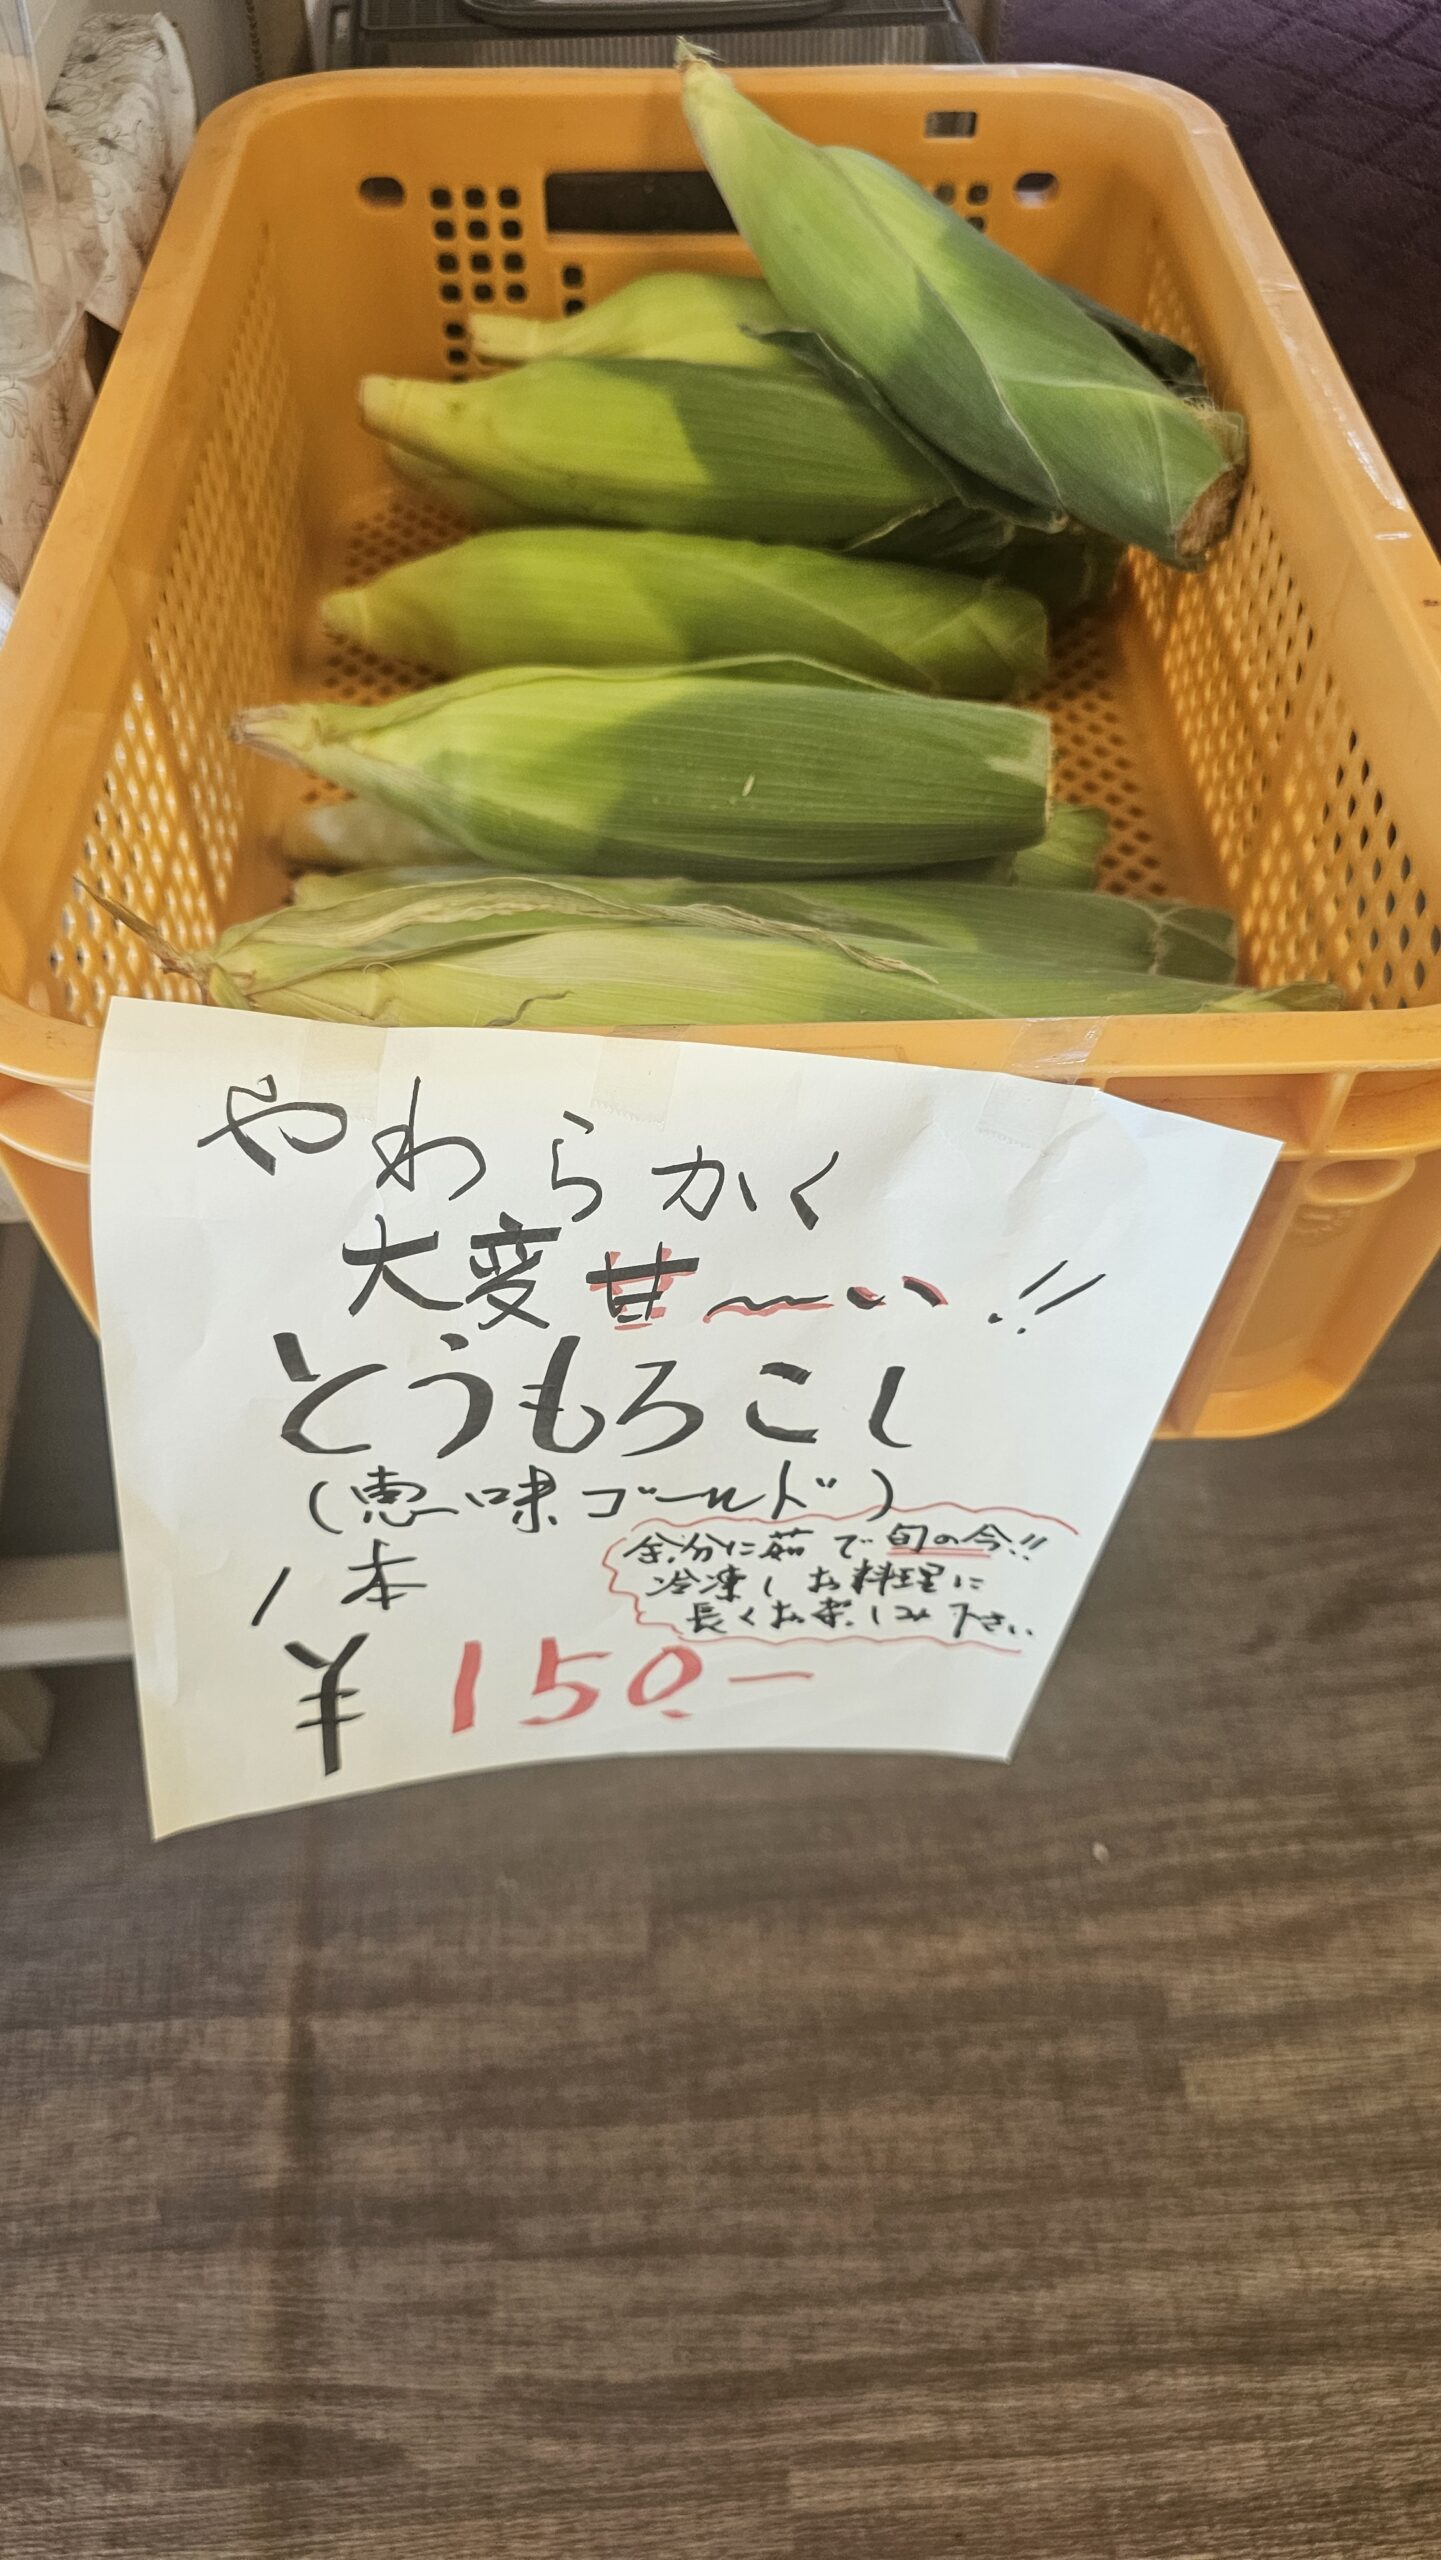 やわらかく
大変甘〜い!!
とうもろこし
(恵味ゴールド)
1本
余分に茹で旬の今!!
冷凍しお料理に
長くお楽しみ下さい
¥150.-